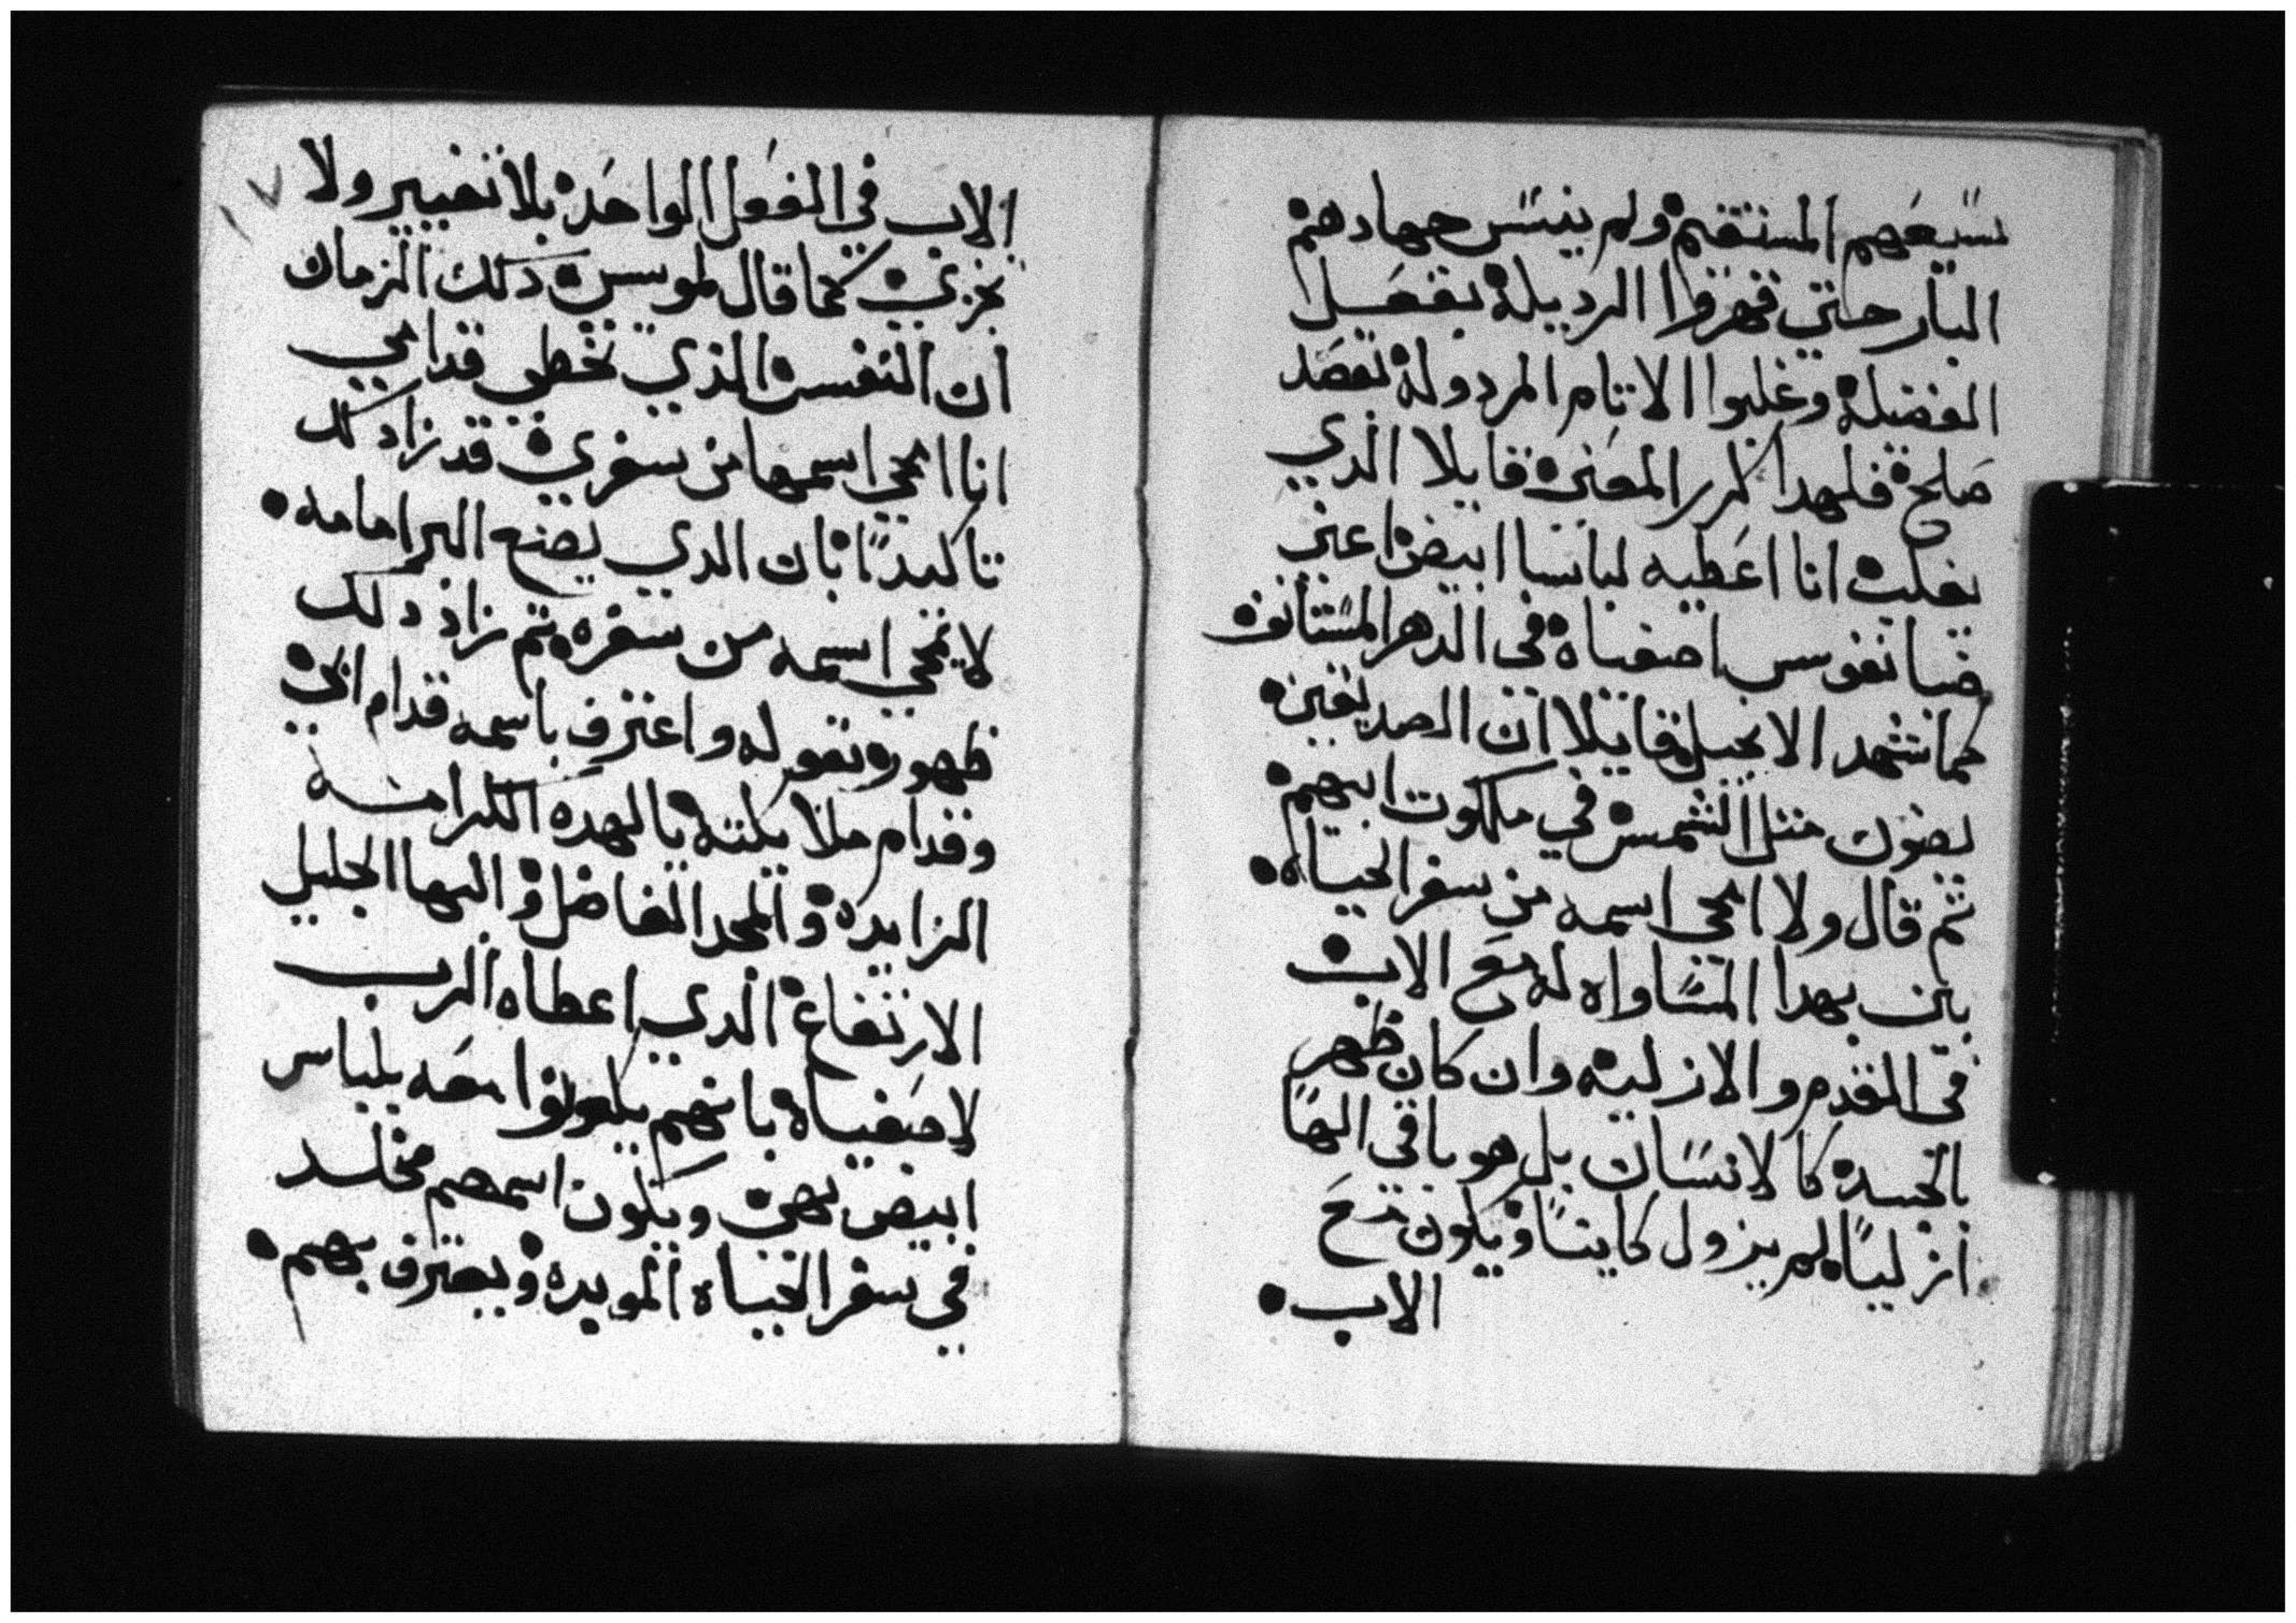 سيعهم المستقيم ولم ينيس جهادهم
البار حتي قهروا الرديله بفعل
الفضيله وغلبوا الاتام المردوله بقصد
صلح فلهدا كرر المعني قايلا الذي
يغلب انا اعطيه لباسا ابيض اعني
ضيا نفوس اصفياه في الدهر المستانف
كما تشهد الانجيل قايلا ان الصديقين
يضون متل الشمس في ملكوت ابيهم
تم قال ولا امحي اسمه من سفر الحياه
بين بهدا المساواه له مع الاب
في القدم والازليه وان كان ظهر
بالجسد كالانسان بل هو باقي الهًا
ازليًا لم يزول كاينًا ويكون مع
الاب
الاب في الفعل الواحد بلا تغيير ولا
تجزي كما قال لموسي دلك الزمان
ان النفس الذي تخطي قدامي
انا امحي اسمها من سفري قد زاد كد
تاكيدًا بان الدي يصنع البر امامه
لا يمحي اسمه من سفره تم زاد دلك
ظهور بقوله واعترف باسمه قدام ابي
وقدام ملايكته يا لهده الكرامه
الزايده والمجد الفاضل والبها الجليل
الارتفاع الدي اعطاه الرب
لاصفياه بانهم يكونوا معه بلباس
ابيض بهي ويكون اسمهم مخلد
في سفر الحياه الموبده ويعترف بهم